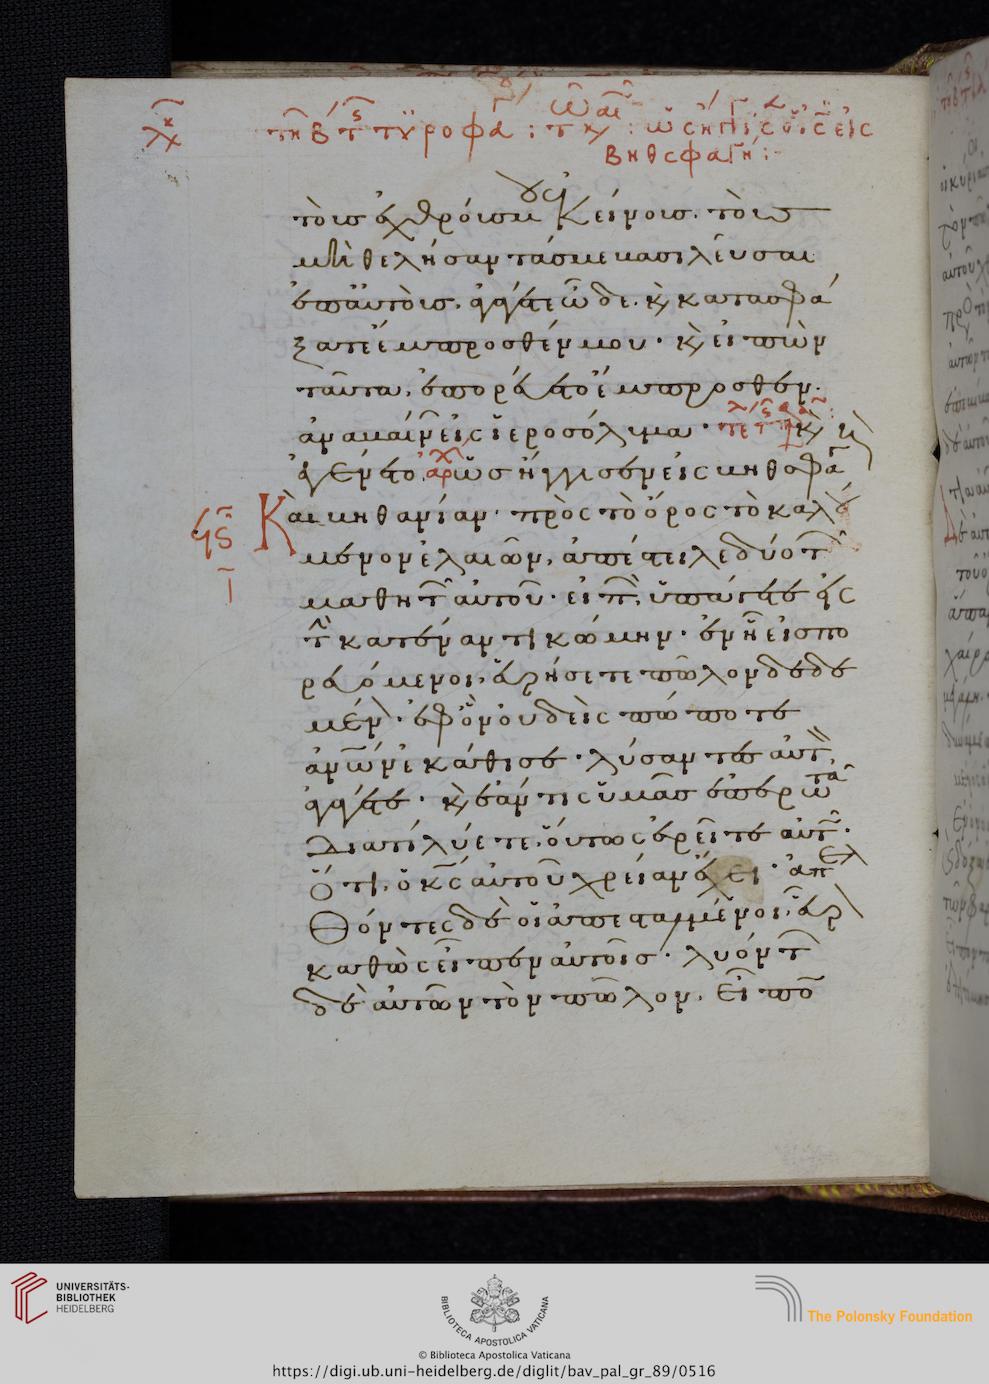 τῇ Β τῆς τυροφά : τῷ κ : ὡς ἤγγισεν ὁ ις εἰς
βηθσφαγή :
τοὺς ἐχθρούς μου ἐκείνους τοὺς
μὴ θελήσαντάς με βασιλεῦσαι
ἐπ' αὐτούς, ἀγάγετε ὧδε, κ κατασφά
ξατε ἔμπροσθέν μου. κ εἰπὼν
ταῦτα, ἐπορεύετο ἔμπροσθεν
ἀναβαίνων εἰς ἱεροσόλυμα. κ
ἐγένετο ὡς ἤγγισεν εἰς βηθσφαγῆ
Καὶ βηθανίαν πρὸς τὸ ὄρος τὸ καλού
μενον ἐλαιῶν, ἀπέστειλε δύο τῶν
μαθητῶν αὐτοῦ. εἰπών, ὑπάγετε εἰς
τὴν κατέναντι κώμην. ἐν ᾗ εἰσπο
ρευόμενοι, εὑρήσετε πῶλον δεδε
μένον. ἐφ' ὃν οὐδεὶς πώποτε
ἀνων ἐκάθισε. λύσαντες αὐτὸν,
ἀγάγετε. κ ἐάν τις ὑμᾶς ἐπερωτᾷ
διατί λύετε, οὕτως ἐρεῖτε αὐτῷ.
ὅτι, ὁ κς αὐτοῦ χρείαν ἔχει. ἀπελ
θόντες δὲ οἱ ἀπεσταλμένοι, εὗρον
καθὼς εἶπεν αὐτοῖς. λυόντων
δὲ αὐτῶν τὸν πῶλον, εἶπον
UNIVERSITÄTS-
BIBLIOTHEK
HEIDELBERG
BIBLIOTECA APOSTOLICA VATICANA
The Polonsky Foundation
© Biblioteca Apostolica Vaticana
https://digi.ub.uni-heidelberg.de/diglit/bav_pal_gr_89/0516